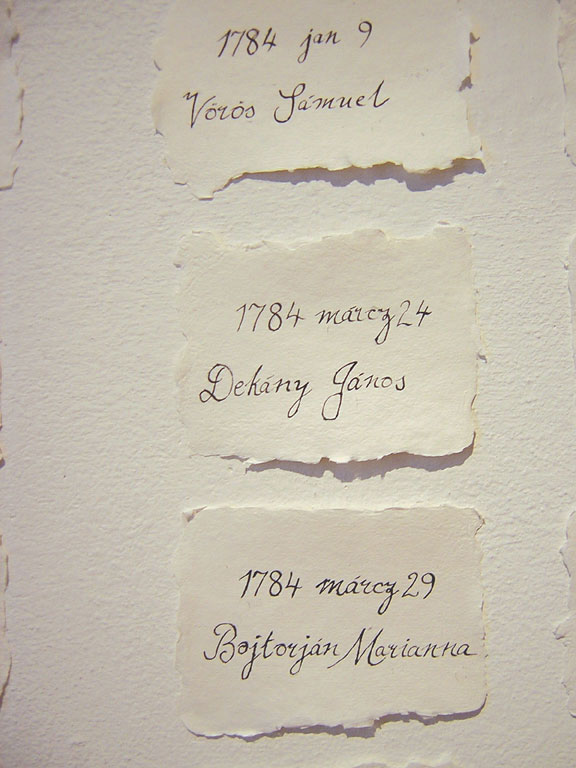 1784 jan 9
Vörös Sámuel
1784 márcz 24
Dekány János
1784 márcz 29
Bojtorján Marianna